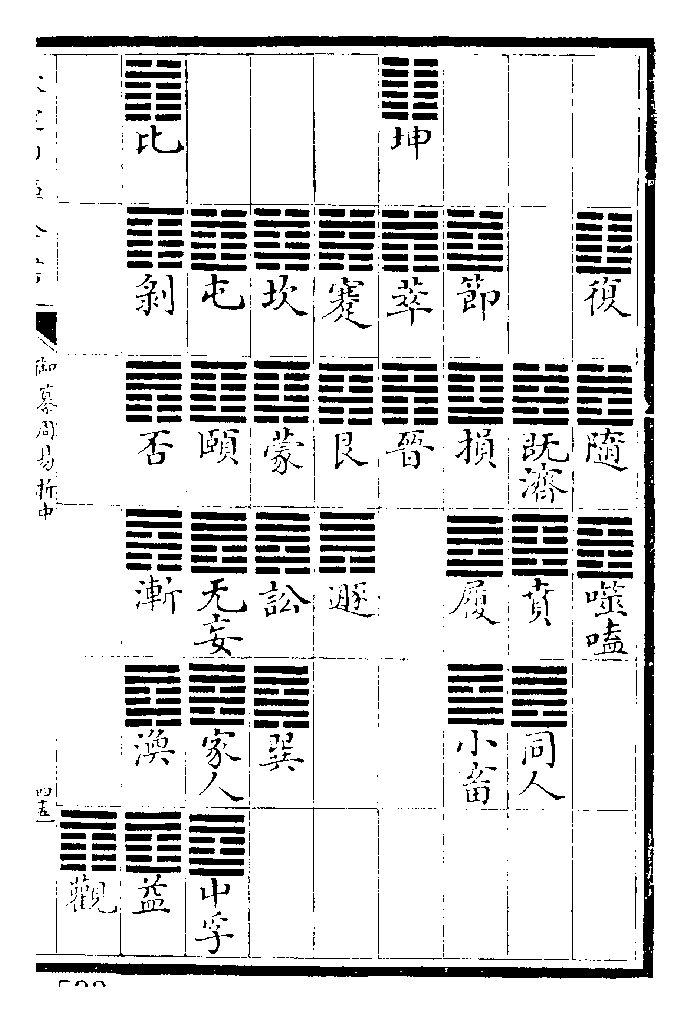 復 隨 噬嗑
既濟 賁 同人
節 損 履 小畜
坤 萃 晉
蹇 艮 遯
坎 蒙 訟 巽
屯 頤 无妄 家人 中孚
比 剝 否 漸 渙 益
觀
御纂周易折中